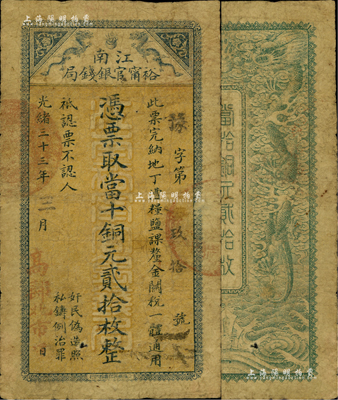 上海陽明拍賣
江南
裕甯官銀錢局
字第
玖拾
號
此票完納地丁漕糧鹽課釐金關稅一體通用
憑票取當十銅元貳拾枚整
祇認票不認人
光緒三十三年
月
日
奸民偽造照
私鑄例治罪
當拾銅元貳拾枚
上海陽明拍賣
上海陽明拍賣